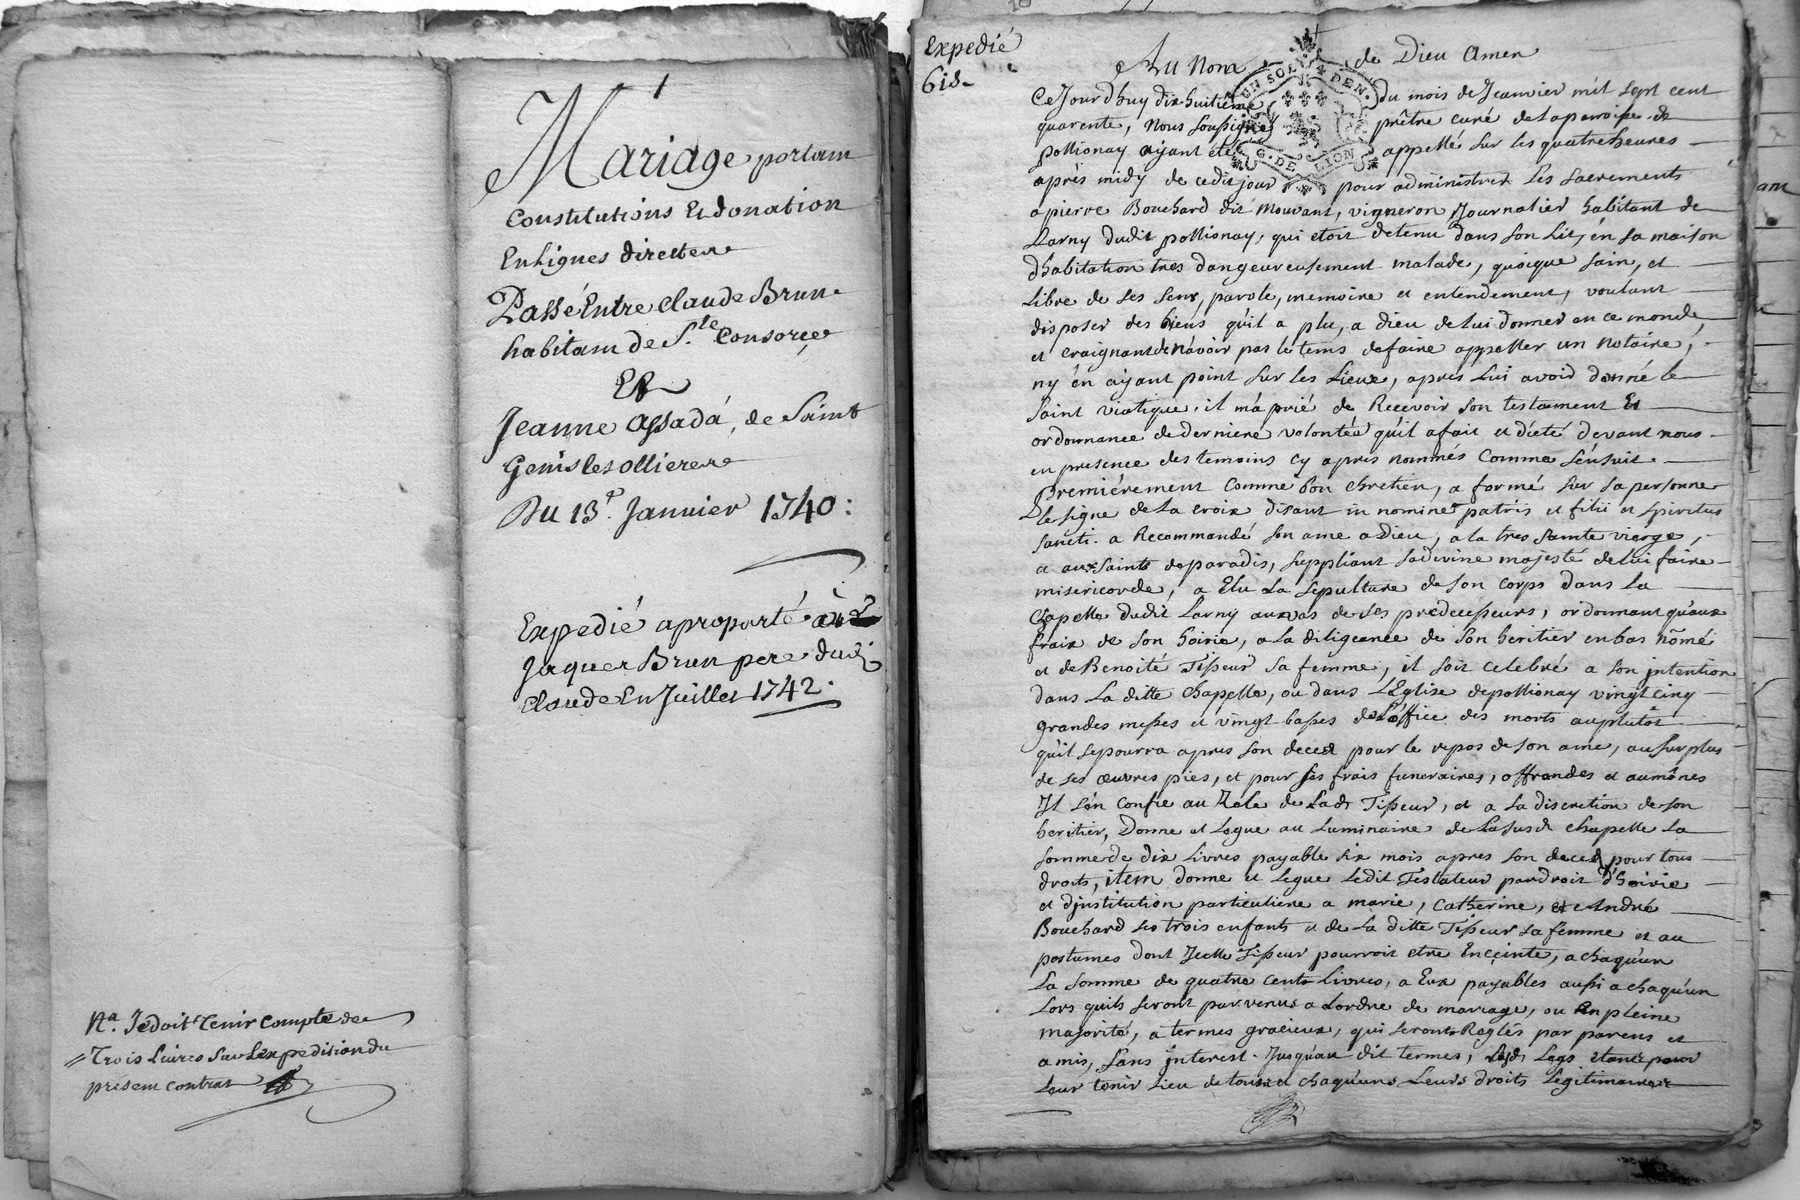 Mariage portant
Constitutions Et donation
En Lignes directes
Passé Entre claude Brun
habitant de S.te Consorce
Et
Jeanne Assadá, de Saint
Genis les ollieres
Du 13.e Janvier 1740:
Expedié a proparté
Jaques Brun pere dudi
claude En Juillet 1742.
Na. Je doit Tenir compte de
Trois Livres sur L'expedition du
présent contrat
Expedié
6 is.
Au Nom de Dieu Amen
UN SOL DEN.
G. DE LION
Ce Jourdhuy dix huitième du mois de Jeanvier mil sept cent
quarente, Nous soussigné prêtre curé de la parroisse de
pollionay ayant été appellé sur les quatre heures
après midy de cedit jour pour administrer Les sacrements
a pierre Bouchard dit Mouvant, vigneron Journalier habitant de
Larny dudit pollionay, qui etoit detenu dans son Lit, en sa maison
dhabitation tres dangeureusement malade, quoique sain, et
Libre de ses sens, parole, memoire et entendement, voulant
disposer des biens quil a plu, a dieu de lui donner en ce monde
et craignant de n'avoir pas le tems de faire appeller un notaire,
ny en ayant point sur les Lieux, après Lui avoir donné le
saint viatique, il m'a prié de Recevoir son testament Et
ordonnance de derniere volontée quil a fait et dicté devant nous
en presence des temoins cy après nommés Comme s'ensuit.
Premiérement comme bon chretien, a formé sur sa personne
le signe de La croix disant in nomine patris et filii et spiritus
sancti. a Recommandé son ame a Dieu, a la tres sainte vierge,
et aux saints de paradis, suppliant sa divine majesté de lui faire
misericorde, a Elu La sepulture de son corps dans La
chapelle dudit Larny au vas de ses predecesseurs, ordonnant qu'aux
frais de son hoirie, a la diligeance de son heritier en bas nōmé
et de Benoite Tisseur sa femme, il soit celebré a son intention
dans La ditte chapelle, ou dans L'Eglise de pollionay vingt cinq
grandes messes et vingt basses de L'office des morts au plutôt
qu'il se pourra apres son deced pour le repos de son ame, au surplus
de ses œuvres pies, et pour ses frais funeraires, offrandes et aumônes
Il s'en confie au Zele de Lad. Tisseur, et a La discretion de son
heritier, Donne et Legue au Luminaire de La susd. chapelle La
somme de dix Livres payable six mois apres son deced pour tous
droits, item donne et legue ledit Testateur par droit d'hoirie
et d'institution particuliere a marie, Catherine, et André
Bouchard ses trois enfants et de La ditte Tisseur sa femme et au
postumes dont Jcelle Tisseur pourroit etre Enceinte, a chaqu'un
La somme de quatre cents Livres, a Eux payables aussi a chaqu'un
Lors quils seront parvenus a Lordre de mariage, ou En pleine
majorité, a termes gracieux, qui seront Reglés par parens et
amis, sans interest. Jusquau dit termes, Lesd. Legs etant pour
Leur tenir Lieu de tous et chaqu'uns Leurs droits Legitimaires